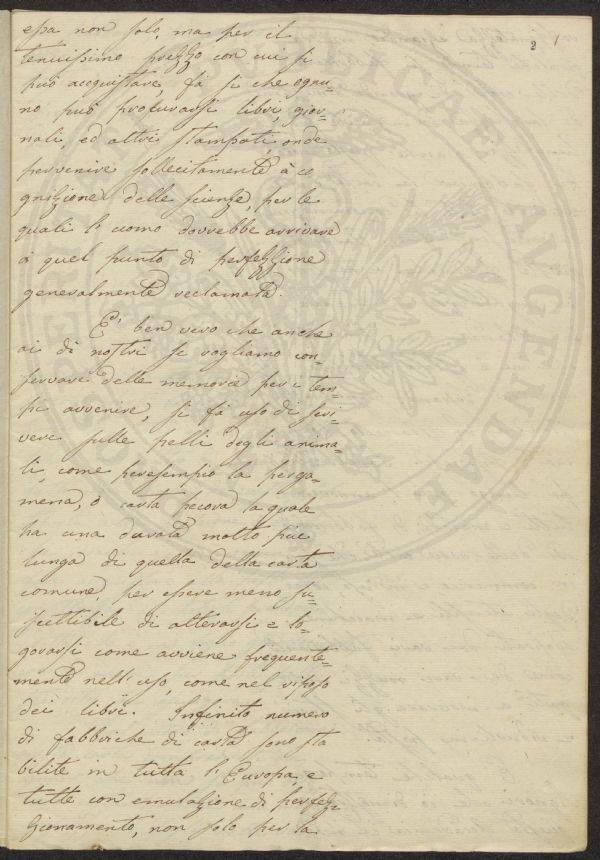 2 1
essa non solo, ma per il
tenuissimo prezzo con cui si
può acquistare, fà si che ognu=
no può procurarsi libri, gior=
nali, ed altri stampati, onde
pervenire sollecitamente à co
gnizione delle scienze, per le
quali l'uomo dovrebbe arrivare
à quel punto di perfezzione
generalmente reclamata.
E' ben vero che anche
ai dì nostri se vogliamo con=
servare delle memorie per i tem=
pi avvenire, si fà uso di scri=
vere sulle pelli degli anima=
li, come peresempio la perga=
mena, o carta pecora la quale
ha una durata molto più
lunga di quella della carta
comune, per essere meno su=
scettibile di alterarsi e lo=
gorarsi come avviene frequente=
mente nell'uso, come nel riposo
dei libri. Infinito numero
di fabbriche di carta sono sta
bilite in tutta l'Europa, e
tutte con emulazione di perfez=
zionamento, non solo per la
QUE AUGENDAE